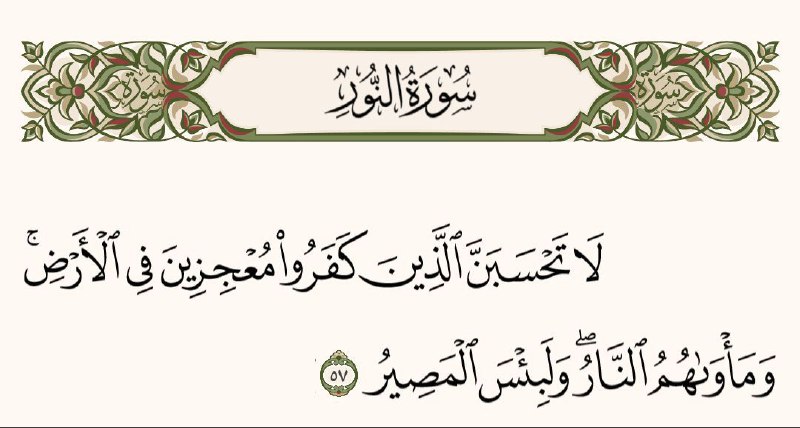 سُورَةُ النُّورِ
سورة
سورة
لَا تَحْسَبَنَّ ٱلَّذِينَ كَفَرُوا۟ مُعْجِزِينَ فِى ٱلْأَرْضِ ۚ
وَمَأْوَىٰهُمُ ٱلنَّارُ ۖ وَلَبِئْسَ ٱلْمَصِيرُ ٥٧